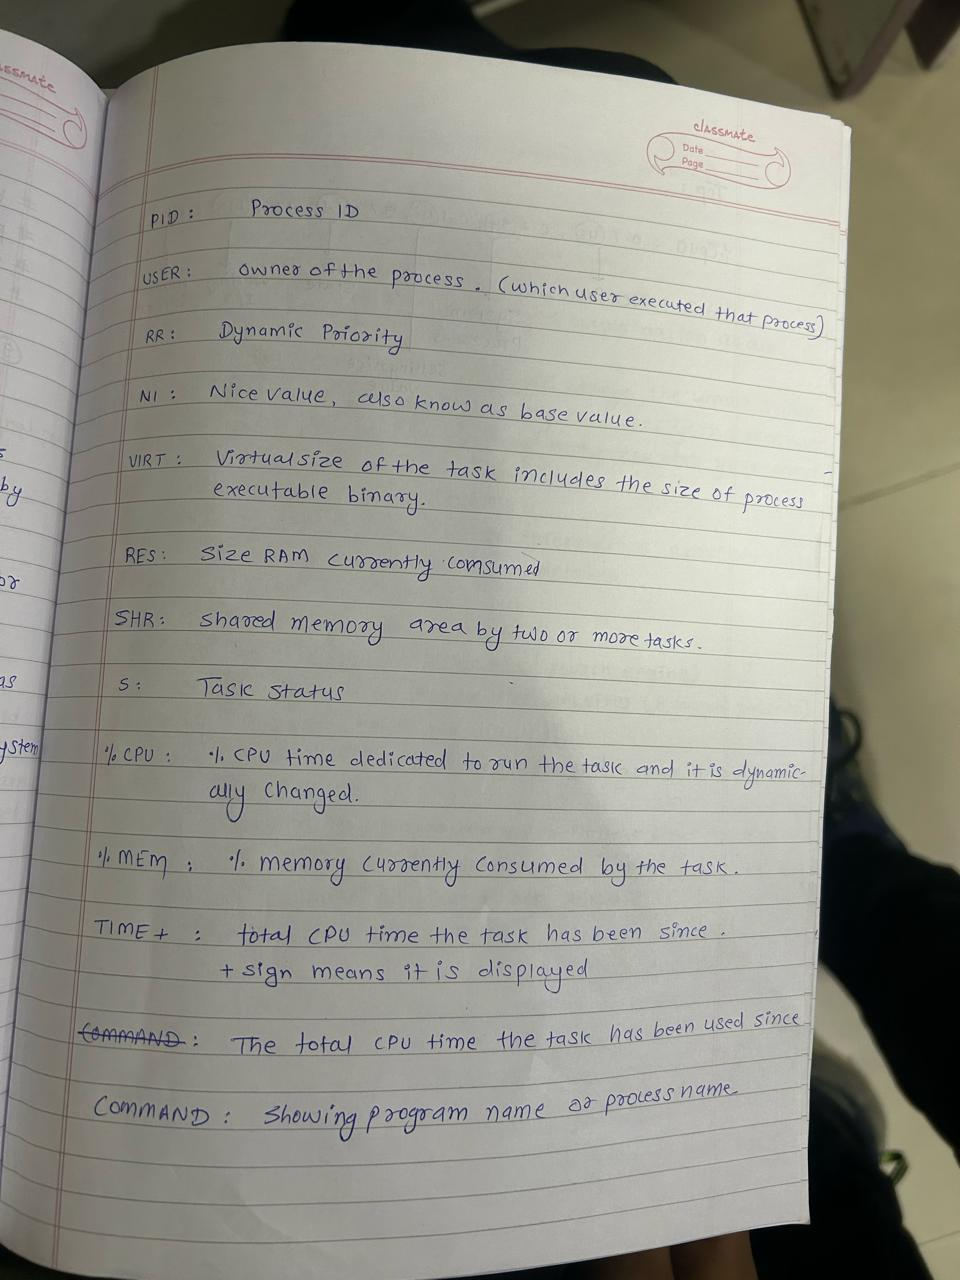 assmate
classmate
Date
Page
PID : Process ID
USER : owner of the process. (which user executed that process)
RR : Dynamic Priority
NI : Nice value, also know as base value.
VIRT : Virtual size of the task includes the size of process
executable binary.
RES : Size RAM currently comsumed
SHR : shared memory area by two or more tasks.
S : Task status
% CPU : % CPU time dedicated to run the task and it is dynamic-
ally changed.
% MEM : % memory currently consumed by the task.
TIME + : total CPU time the task has been since .
+ sign means it is displayed
COMMAND : The total CPU time the task has been used since
COMMAND : Showing program name or process name
by
or
as
ystem